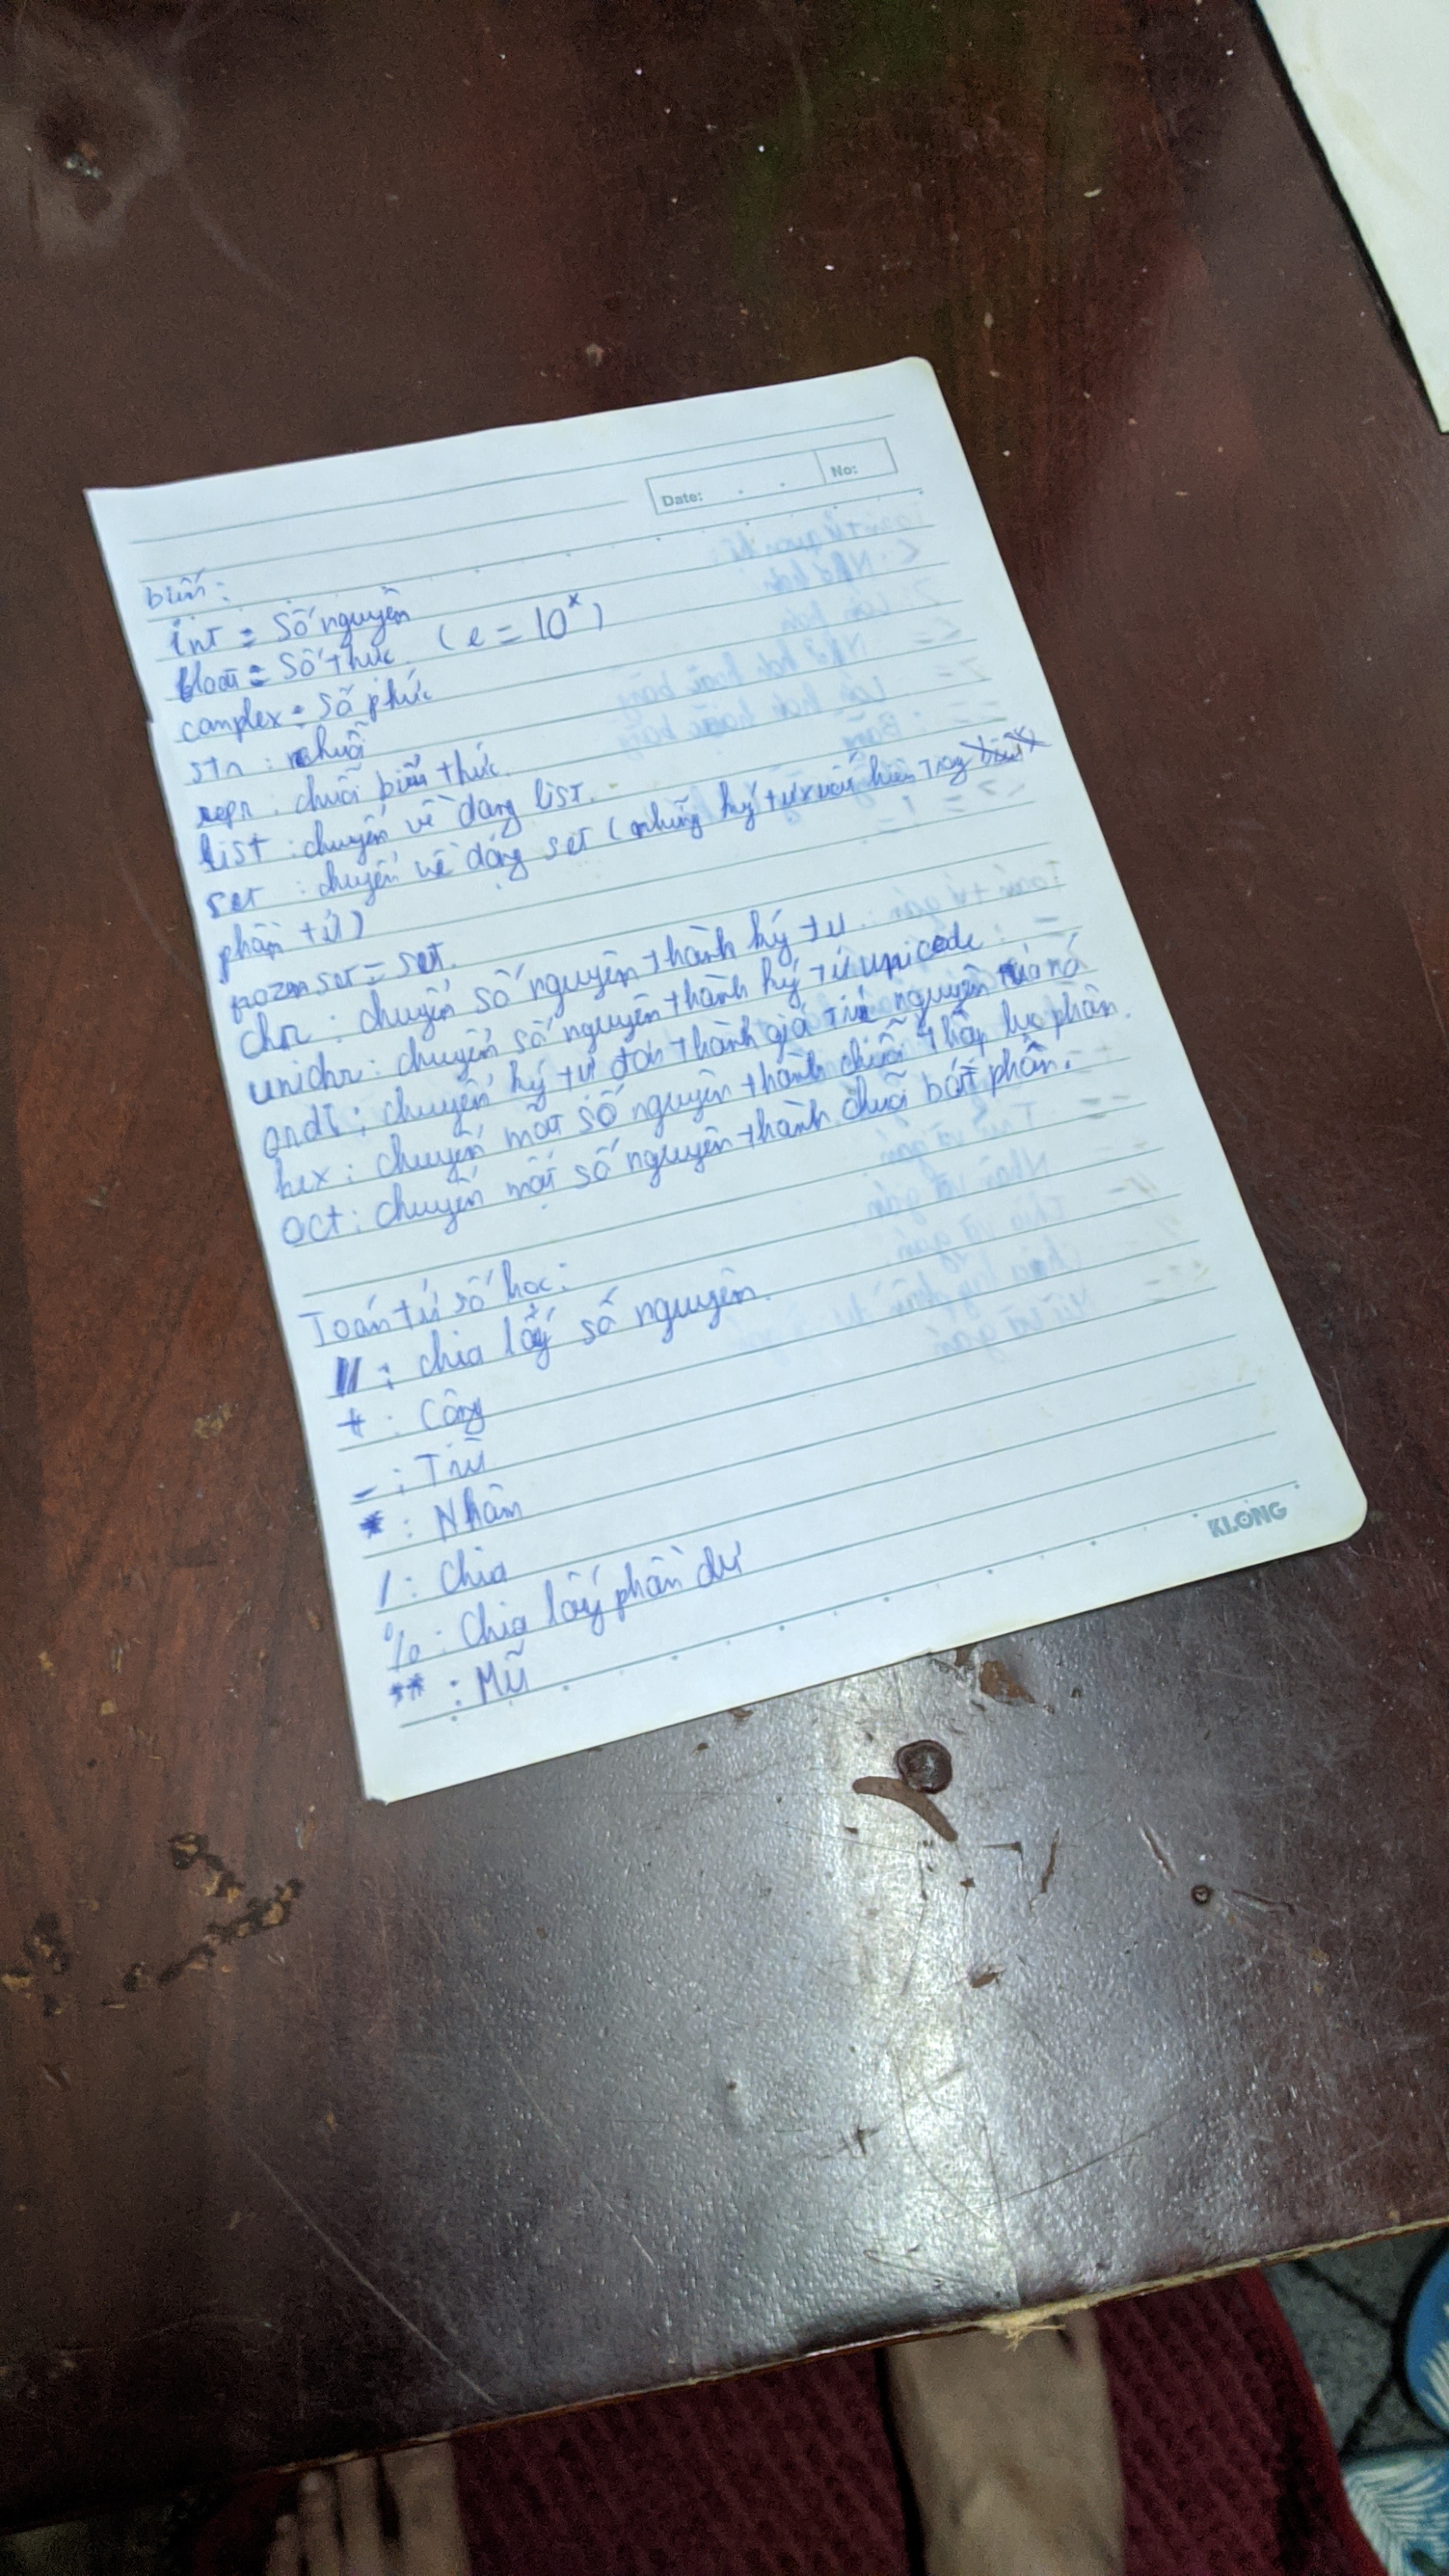 Date: No:
biến:
int = Số nguyên
float = Số thức (e = 10^x)
complex = Số phức
str : chuỗi
repr : chuỗi biểu thức.
list : chuyển về dạng list.
set : chuyển về dạng set (những ký tự xuất hiện trong
phần tử)
set = set.
chr : chuyển số nguyên thành ký tự.
unichr : chuyển số nguyên thành ký tự unicode
ord : chuyển ký tự đơn thành giá trị nguyên của nó
hex : chuyển một số nguyên thành chuỗi thập lục phân.
oct : chuyển một số nguyên thành chuỗi bát phân.
Toán tử số học:
// : chia lấy số nguyên.
+ : Cộng
- : Trừ
* : Nhân
/ : Chia
% : Chia lấy phần dư
** : Mũ
KLONG